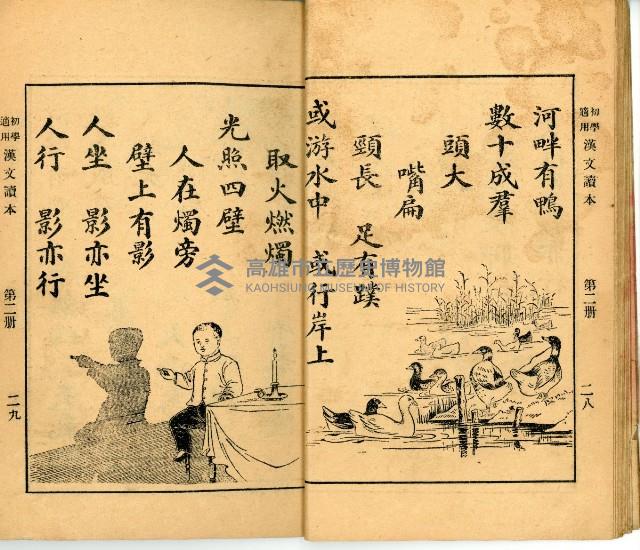 初學適用 漢文讀本 第二册 二八
河畔有鴨
數十成羣
頭大
嘴扁
頸長 足有蹼
或游水中 或行岸上
取火燃燭
光照四壁
人在燭旁
壁上有影
人坐 影亦坐
人行 影亦行
初學適用 漢文讀本 第二册 二九
高雄市立歷史博物館
KAOHSIUNG MUSEUM OF HISTORY